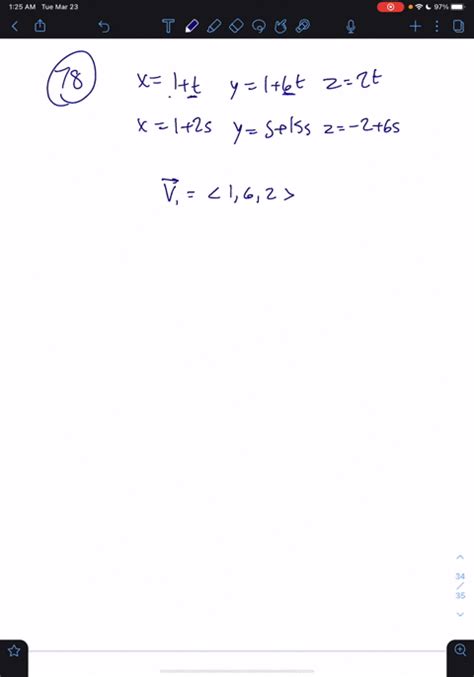 1:25 AM Tue Mar 23 97%
78 x= 1+t y=1+6t z=2t
x=1+2s y=5+15s z=-2+6s
V₁ = <1,6,2>
34
/
35